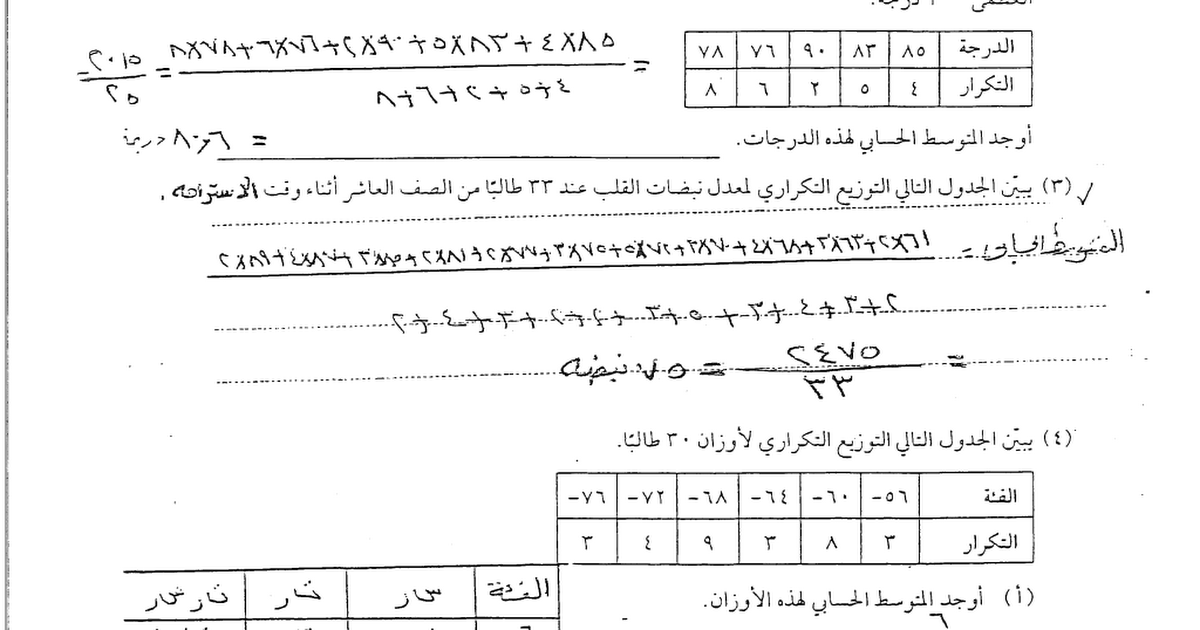 الدرجة ٨٥ ٨٣ ٩٠ ٧٦ ٧٨
التكرار ٤ ٥ ٢ ٦ ٨
= ٤×٨٥ + ٥×٨٣ + ٢×٩٠ + ٦×٧٦ + ٨×٧٨ = ٢٠١٥
٤ + ٥ + ٢ + ٦ + ٨ ٢٥
أوجد المتوسط الحسابي لهذه الدرجات.
= ٨٠٫٦ درجة
(٣) يبيّن الجدول التالي التوزيع التكراري لمعدل نبضات القلب عند ٣٣ طالبًا من الصف العاشر أثناء وقت الاستراحة .
المتوسط الحسابي = ٢×٦١ + ٣×٦٣ + ٤×٦٨ + ٣×٧٠ + ٥×٧٢ + ٣×٧٥ + ٢×٧٧ + ٢×٨١ + ٣×٨٥ + ٤×٨٧ + ٢×٨٩
٢ + ٣ + ٤ + ٣ + ٥ + ٣ + ٢ + ٢ + ٣ + ٤ + ٢
= ٢٤٧٥ = ٧٥ نبضة
٣٣
(٤) يبيّن الجدول التالي التوزيع التكراري لأوزان ٣٠ طالبًا.
الفئة ٥٦- ٦٠- ٦٤- ٦٨- ٧٢- ٧٦-
التكرار ٣ ٨ ٣ ٩ ٤ ٣
(أ) أوجد المتوسط الحسابي لهذه الأوزان.
الفئة س ر ت ر ت ر س ر